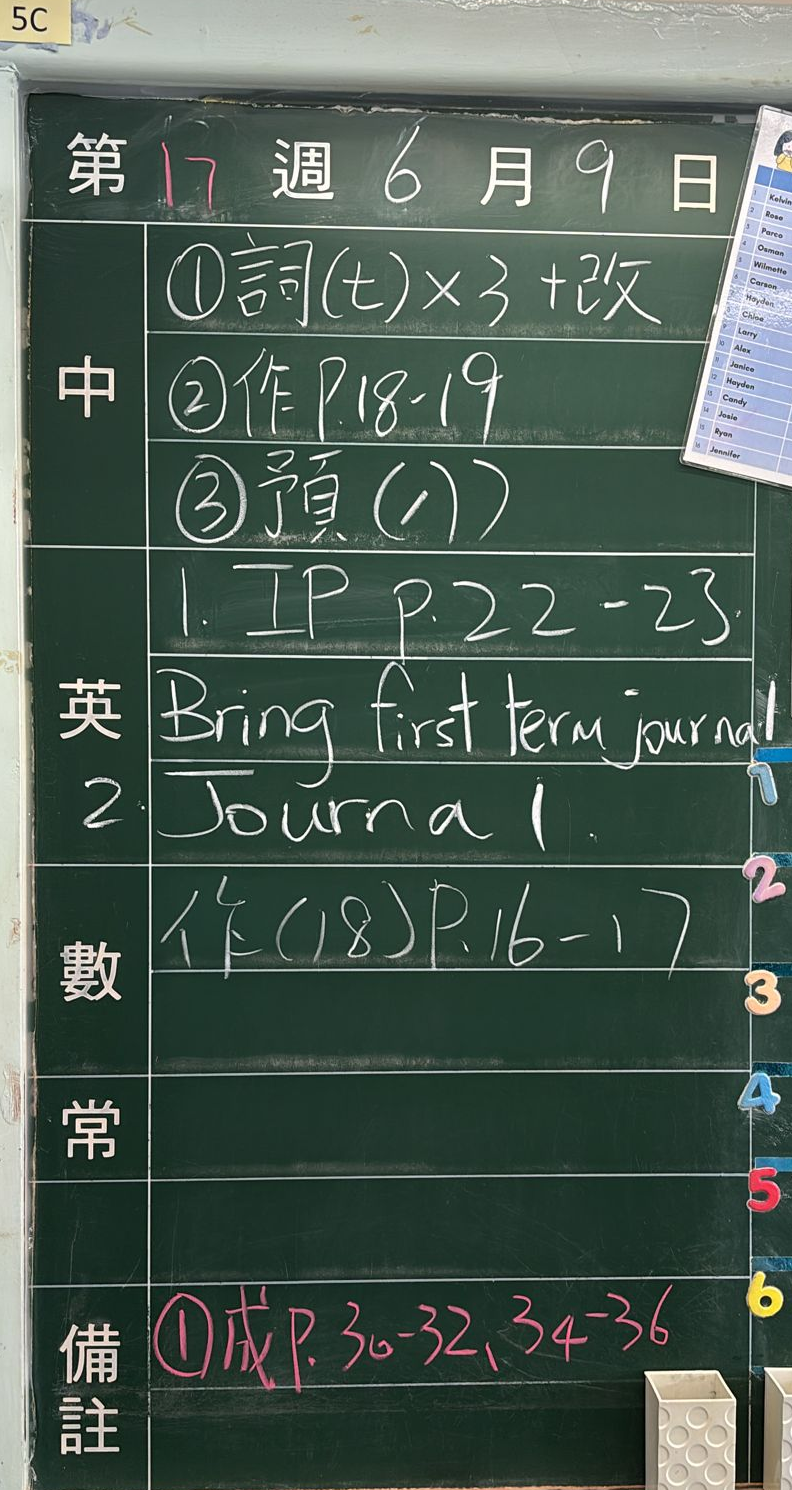 5C
第 17 週 6 月 9 日
中
①詞(七)×3+改
②作P.18-19
③預(八)
英
1. IP p.22-23.
Bring first term journal
2. Journal.
數
作(18)P.16-17
常
備註
①成P.30-32、34-36
1 Kelvin
2 Rose
3 Parco
4 Osman
5 Wilmette
6 Carson
Hayden
Chloe
Larry
10 Alex
11 Janice
12 Hayden
13 Candy
14 Josie
15 Ryan
16 Jennifer
1
2
3
4
5
6